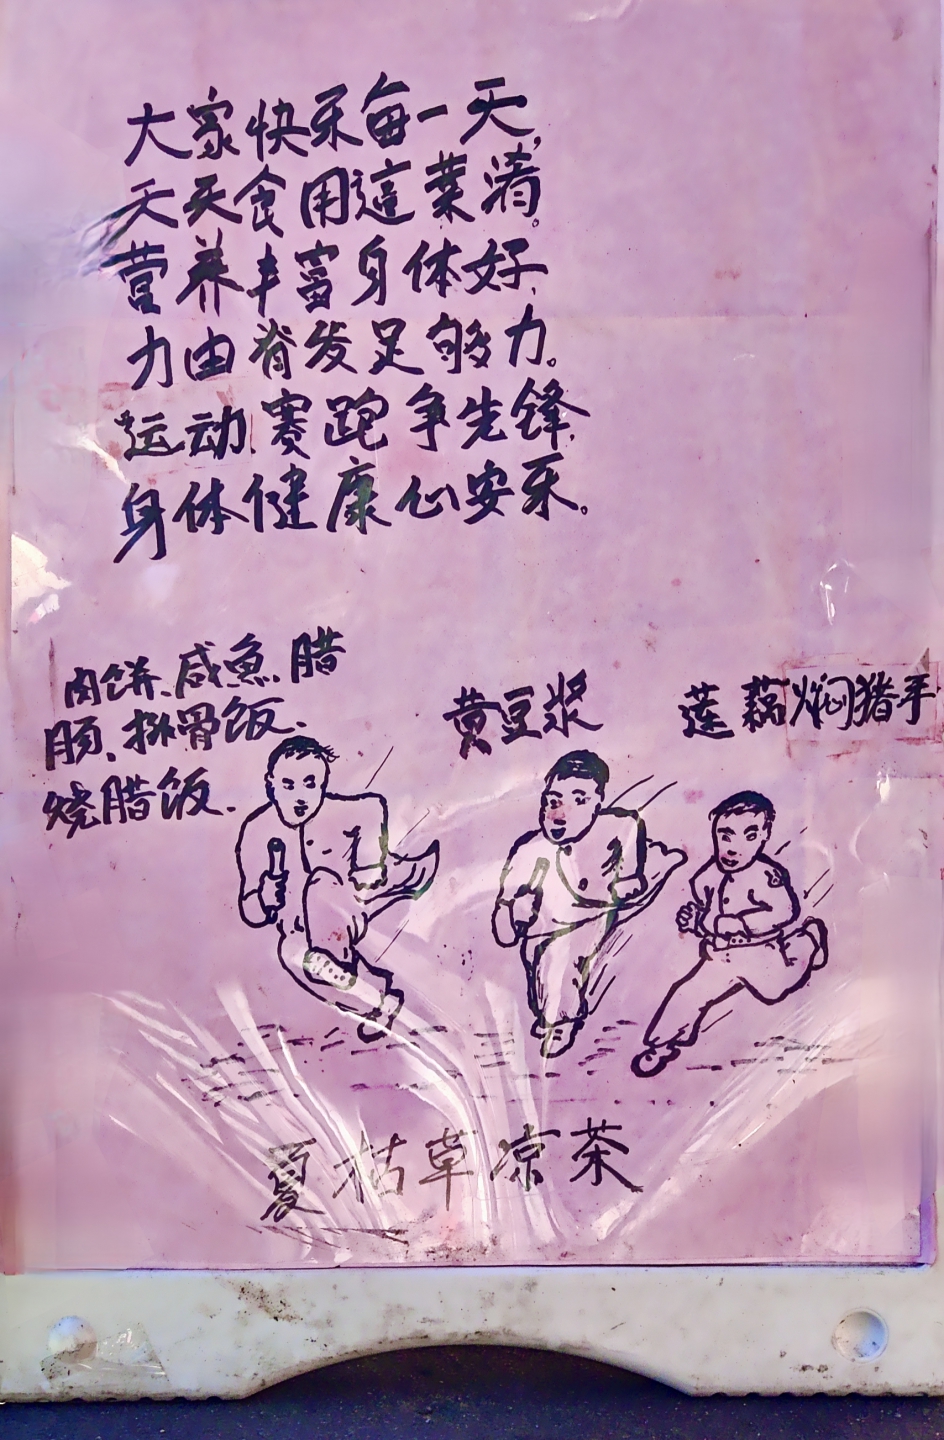 大家快乐每一天,
天天食用這業淆。
营养丰富身体好,
力由脊发足够力。
运动赛跑争先锋,
身体健康心安乐。
肉饼、咸魚、腊
肠、排骨饭.
烧腊饭.
黄豆浆
莲藕焖猪手
夏枯草凉茶